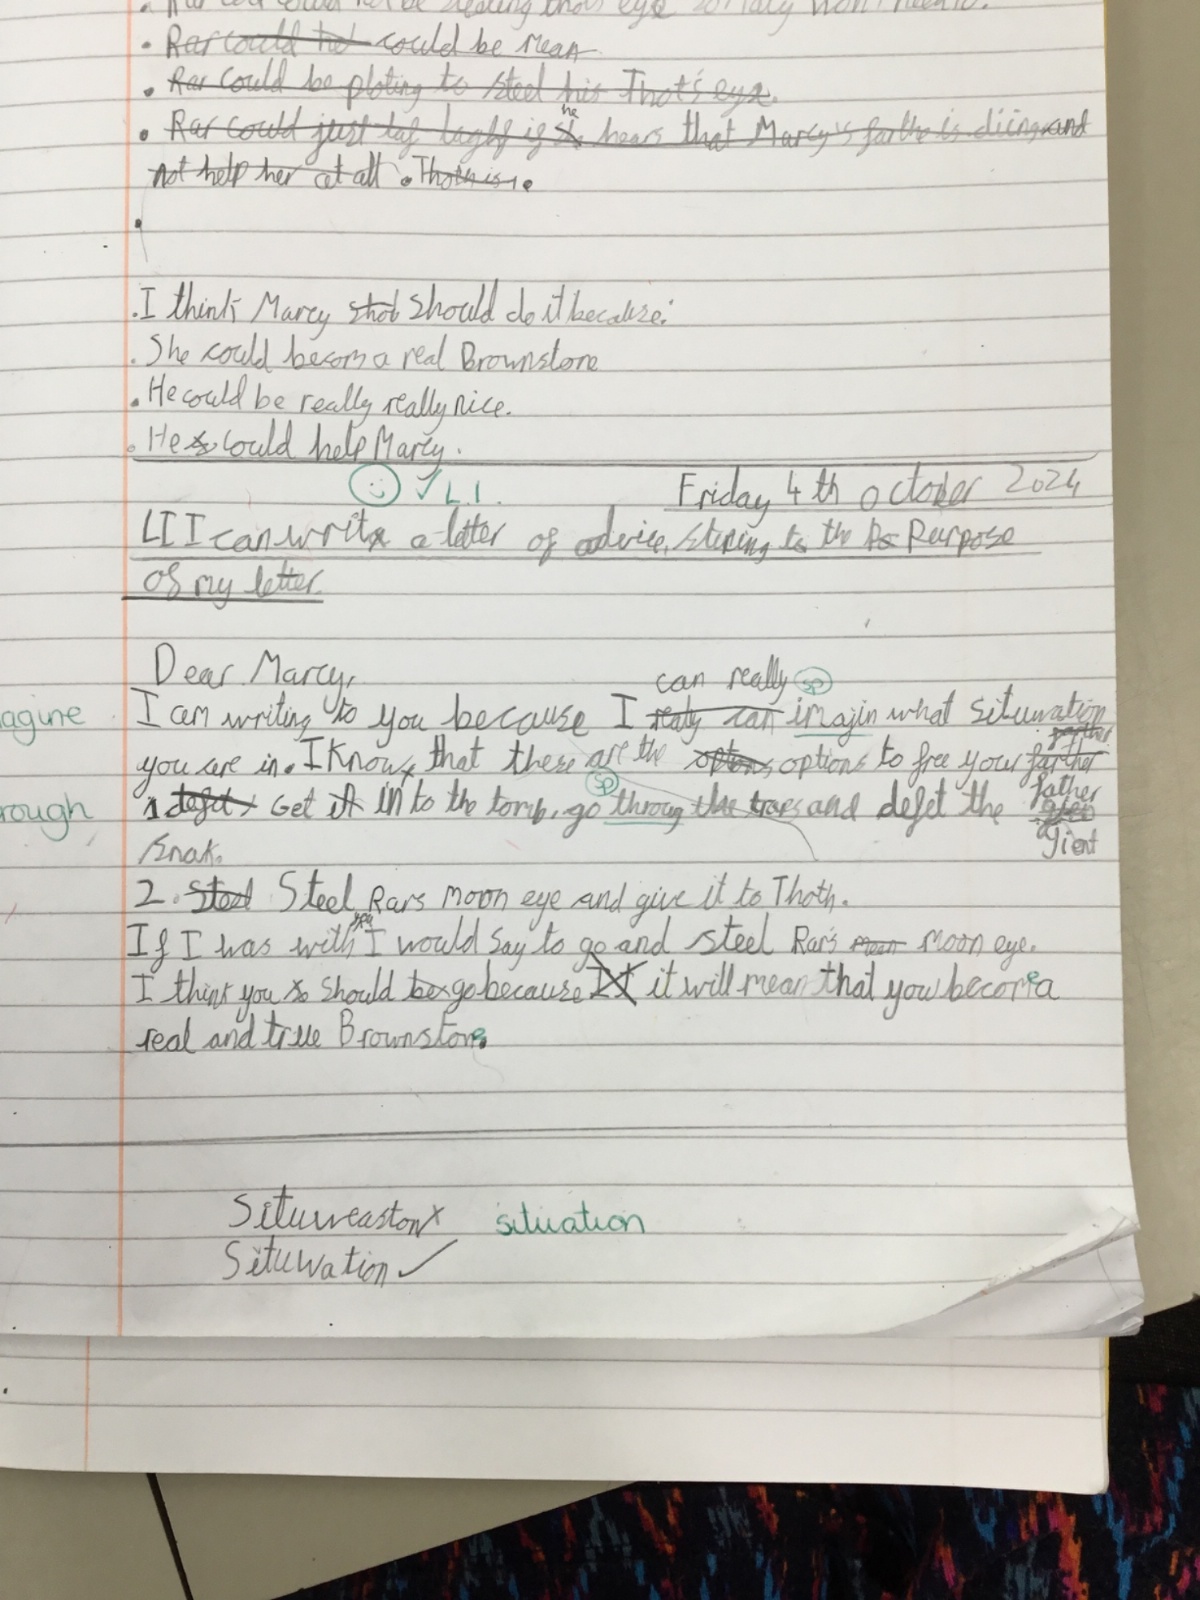 eye
could be mean
Rar Could be ploting to steel his Thot's eye.
he
Rar could just laghf if hears that Marcy's farthe is diing and
not help her at all.
.I think Marcy should do it because:
.She could becom a real Brownstone
.He could be really really nice.
.He could help Marcy.
✓L.I.
Friday 4th october 2024
LI I can write a letter of advice, to the Purpose
of my letter.
Dear Marcy,
can really sp
agine I am writing to you because I imajin what situwation
you are in. I Know that these are the options to free your
father
sp
rough 1 Get in to the tomb, go throug the traps and defet the
gient
Snak.
2. Steel Rars moon eye and give it to Thoth.
you
If I was with I would say to go and steel Rar's moon eye.
I think you should go because it will mean that you become a
real and true Brownstone.
Situweaston x situation
Situwation ✓